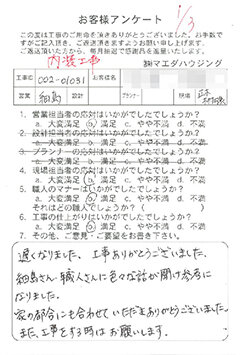 お客様アンケート
1/3
この度は工事のご用命を頂きありがとうございました。お手数で
すがご記入頂き、ご返送頂きますようお願い申し上げます。
ご返送頂いた方から、毎月抽選で感謝品を進呈いたします。
内装工事
㈱マエダハウジング
工事ID 002-01031 お客様名
営業 細島 プランナー 現場
1. 営業担当者の応対はいかがでしたでしょうか?
a. 大変満足 b. 満足 c. やや不満 d. 不満
2. 設計担当者の応対はいかがでしたでしょうか?
a. 大変満足 b. 満足 c. やや不満 d. 不満
3. プランナーの応対はいかがでしたでしょうか?
a. 大変満足 b. 満足 c. やや不満 d. 不満
4. 現場担当者の応対はいかがでしたでしょうか?
a. 大変満足 b. 満足 c. やや不満 d. 不満
5. 職人のマナーはいかがでしたでしょうか?
a. 大変満足 b. 満足 c. やや不満 d. 不満
それはどの職人でしょうか? ( )
6. 工事の仕上がりはいかがでしたでしょうか?
a. 大変満足 b. 満足 c. やや不満 d. 不満
7. その他、ご意見・ご要望をお書き下さい。
遅くなりました。工事ありがとうございました。
細島さん・職人さんに色々な話が聞け参考に
なりました。
家の都合にも合わせていただきありがとうございました。
また、工事をする時はお願いします。